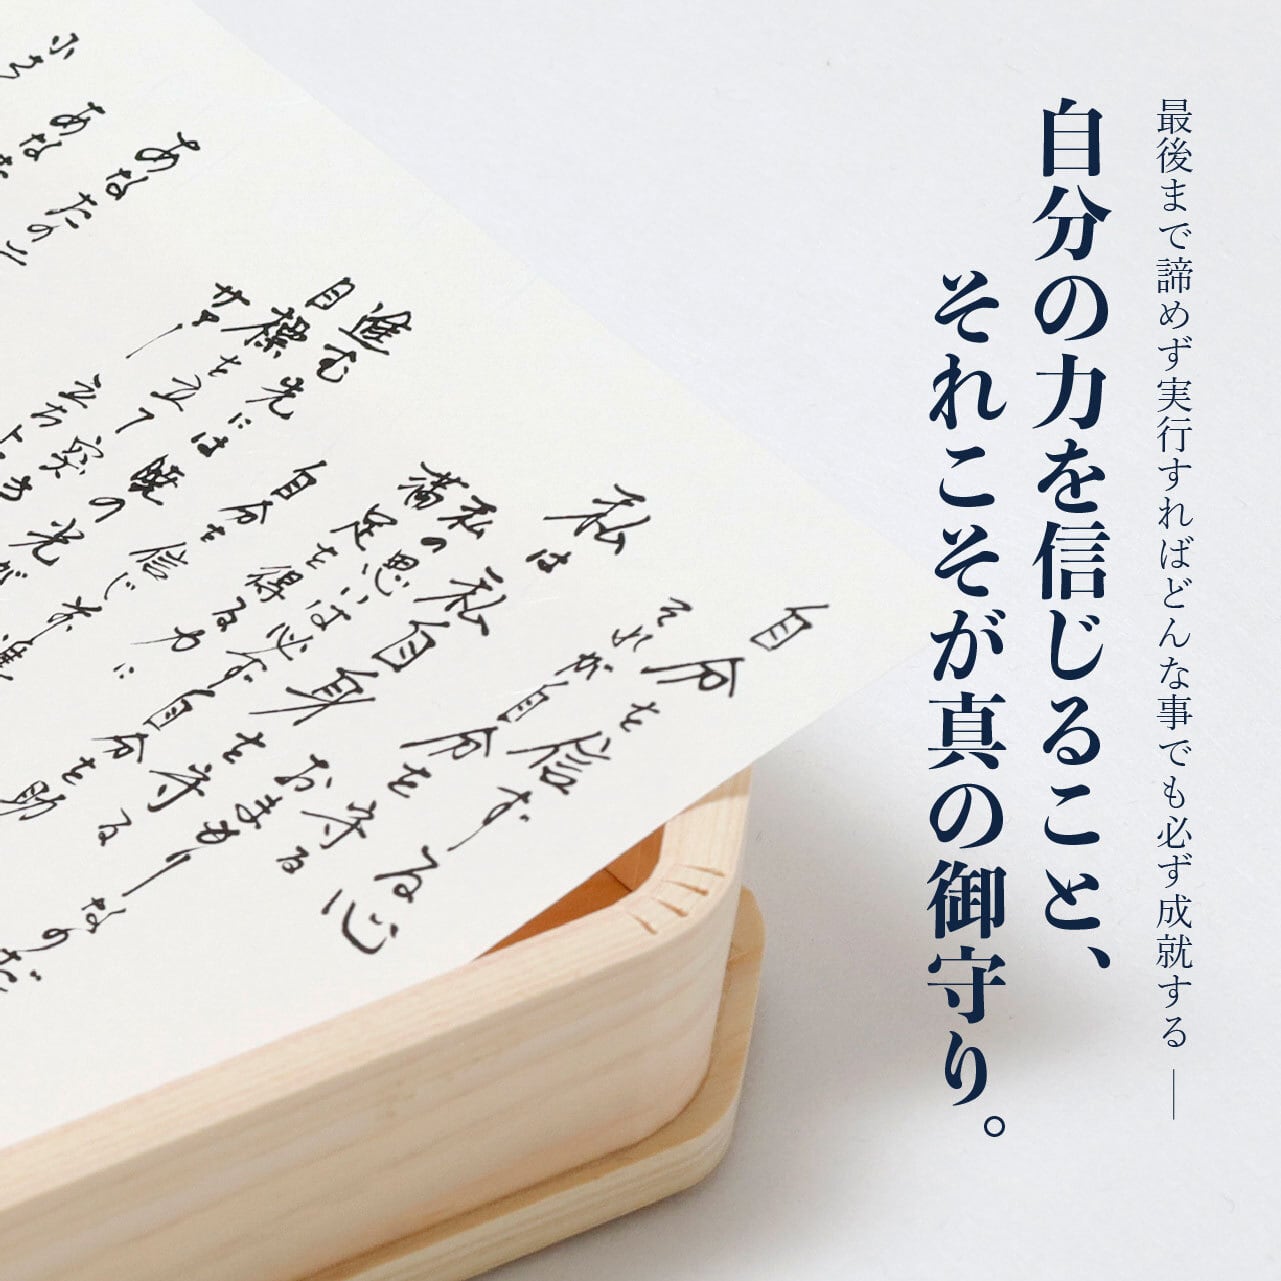 最後まで諦めず実行すればどんな事でも必ず成就する ―
自分の力を信じること、
それこそが真の御守り。
自分を信ずる心
それが自分を守る
私は私自身おまもりなのだ
私の思いは必ず自分を助
満足を得る力に
自分を信じ
進む先には暁の光が
目標を立て突き
あなたの
あなた